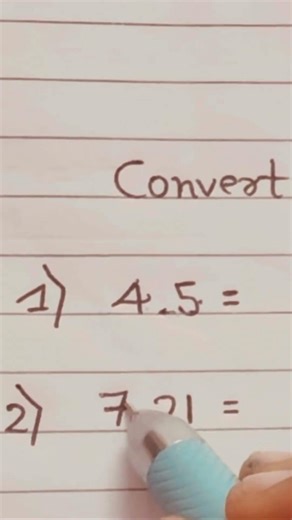 Convert
1) 4.5 =
2) 7.21 =